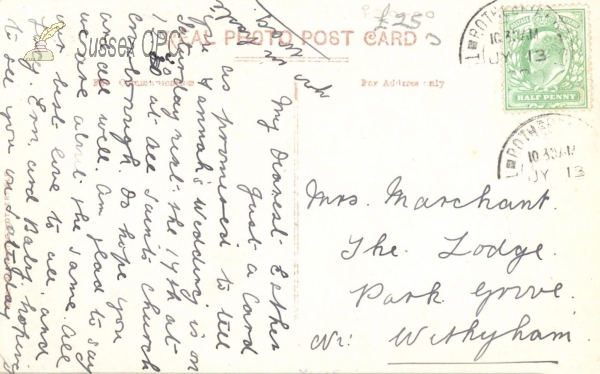 REAL PHOTO POST CARD
Sussex OPC
£25
For Address only
My Dearest Esther
Just a Card
as promised to tell
you Hannah's Wedding is on
Saturday next the 19th at
at All Saints Church
Crowborough. Do hope you
are all well. Am glad to say
we are about the same. All
our best love to all and
Em. and Baby. hoping
to see you on Saturday
HALF PENNY
10.45AM
JY 13
JY 13
Mrs. Marchant.
The Lodge.
Park Grove.
Nr: Withyham.